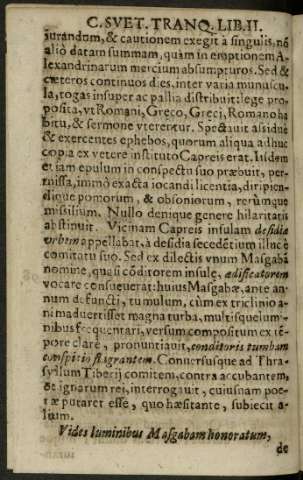 C. SVET. TRANQ. LIB. II.
jurandum, & cautionem exegit à singulis, nõ
aliò datam summam, quàm in emptionem A-
lexandrinarum mercium absumpturos. Sed &
cæteros continuos dies, inter varia munuscu-
la, togas insuper ac pallia distribuit: lege pro-
posita, vt Romani, Græco, Greci, Romano ha
bitu, & sermone vterentur. Spectauit assiduè
& exercentes ephebos, quorum aliqua adhuc
copia ex vetere instituto Capreis erat. Iisdem
etiam epulum in conspectu suo præbuit, per-
missa, immò exacta iocandi licentia, diripien-
dique pomorum, & obsoniorum, rerùmque
missilium. Nullo denique genere hilaritatis
abstinuit. Vicinam Capreis insulam desidiæ
vrbem appellabat, à desidia secedẽtium illuc è
comitatu suo. Sed ex dilectis vnum Masgabã
nomine, quasi cõditorem insulę, ædificatorem
vocare consueuerat: huius Masgabæ, ante an-
num defuncti, tumulum, cùm ex triclinio a-
nimaduertisset magna turba, multisque lumi-
nibus frequentari, versum compositum ex tẽ-
pore clarè, pronuntiauit, conditoris tumbam
conspicio flagrantem. Conuersusque ad Thra-
syllum Tiberij comitem, contra accubantem,
& ignarum rei, interrogauit, cuiusnam poe-
tæ putaret esse, quo hæsitante, subiecit a-
lium.
Vides luminibus Masgabam honoratum,
de